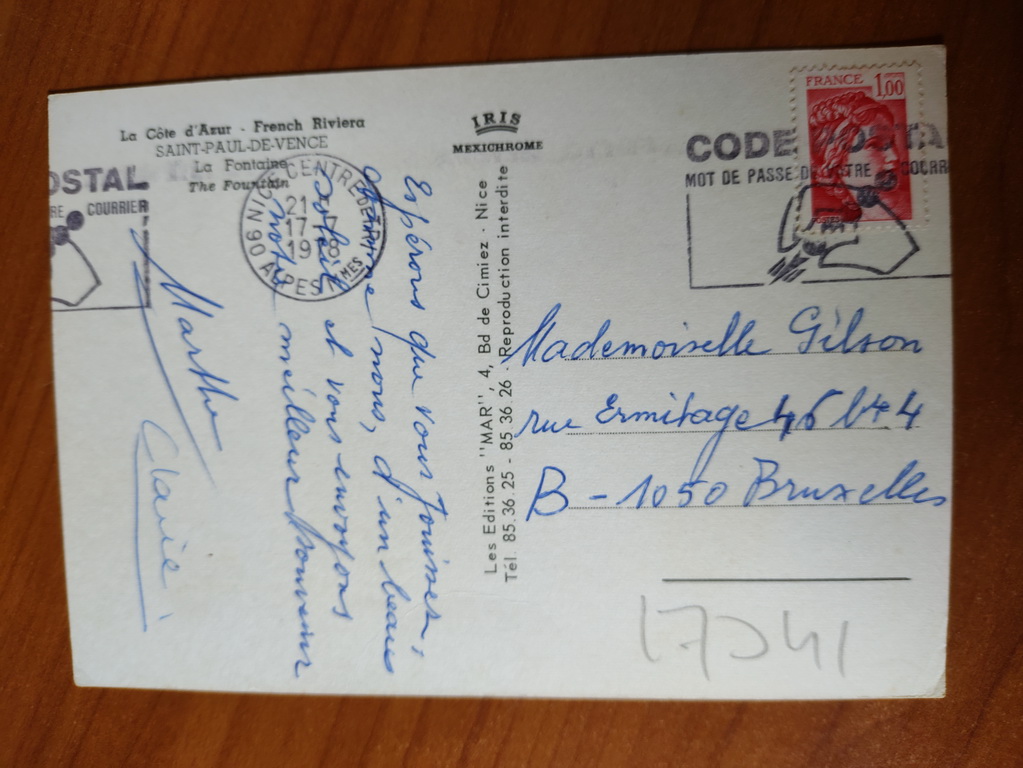 La Côte d'Azur - French Riviera
SAINT-PAUL-DE-VENCE
La Fontaine
The Fountain
IRIS
MEXICHROME
Les Editions "MAR", 4, Bd de Cimiez - Nice
Tél. 85.36.25 - 85.36.26 - Reproduction interdite
FRANCE 1,00
CODE POSTA
MOT DE PASSE DE VOTRE COURR
OSTAL
RE COURRIER
NICE CENTRE DE TRI
21
17-7
19
06 ALPES MMES
Espérons que vous jouissez,
comme nous, d'un beau
soleil et vous envoyons
notre meilleur souvenir
Marthe
Claire
Mademoiselle Gilson
rue Ermitage 46 bt 4
B - 1050 Bruxelles